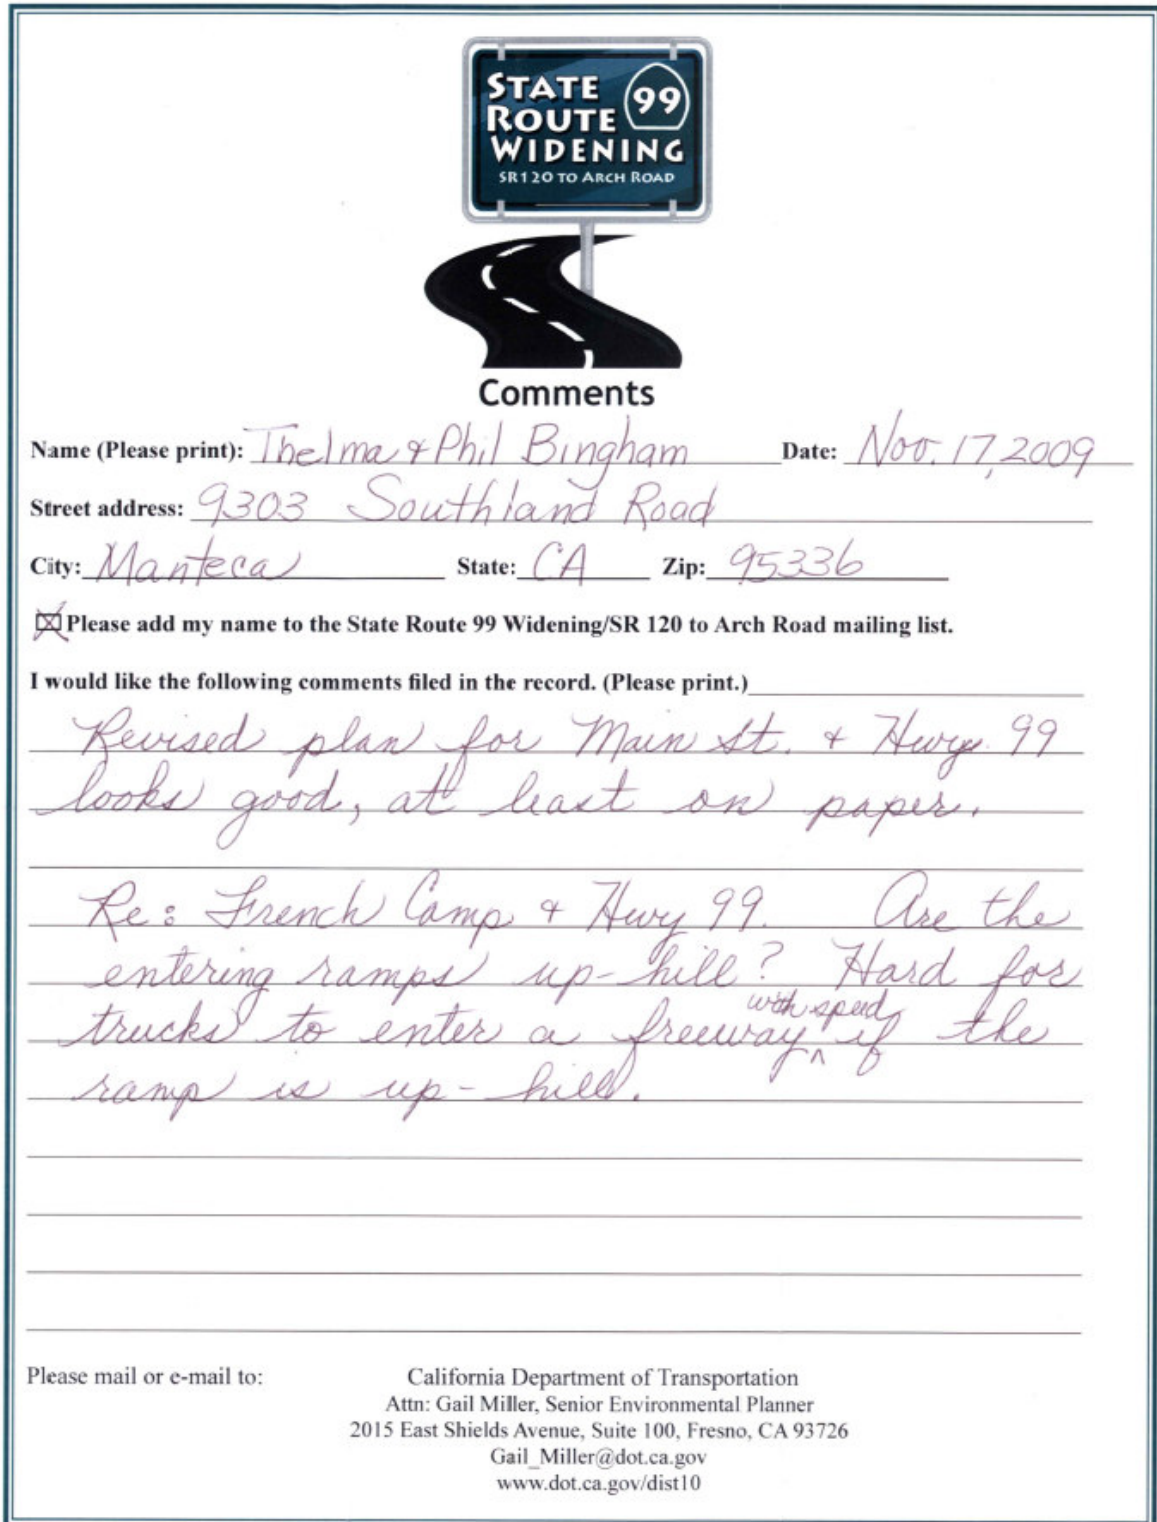 STATE
ROUTE 99
WIDENING
SR120 TO ARCH ROAD
Comments
Name (Please print): Thelma & Phil Bingham Date: Nov. 17, 2009
Street address: 9303 Southland Road
City: Manteca State: CA Zip: 95336
Please add my name to the State Route 99 Widening/SR 120 to Arch Road mailing list.
I would like the following comments filed in the record. (Please print.)
Revised plan for Main St. & Hwy. 99
looks good, at least on paper.
Re: French Camp & Hwy 99. Are the
entering ramps up-hill? Hard for
trucks to enter a freeway with speed if the
ramp is up-hill.
Please mail or e-mail to:
California Department of Transportation
Attn: Gail Miller, Senior Environmental Planner
2015 East Shields Avenue, Suite 100, Fresno, CA 93726
Gail_Miller@dot.ca.gov
www.dot.ca.gov/dist10